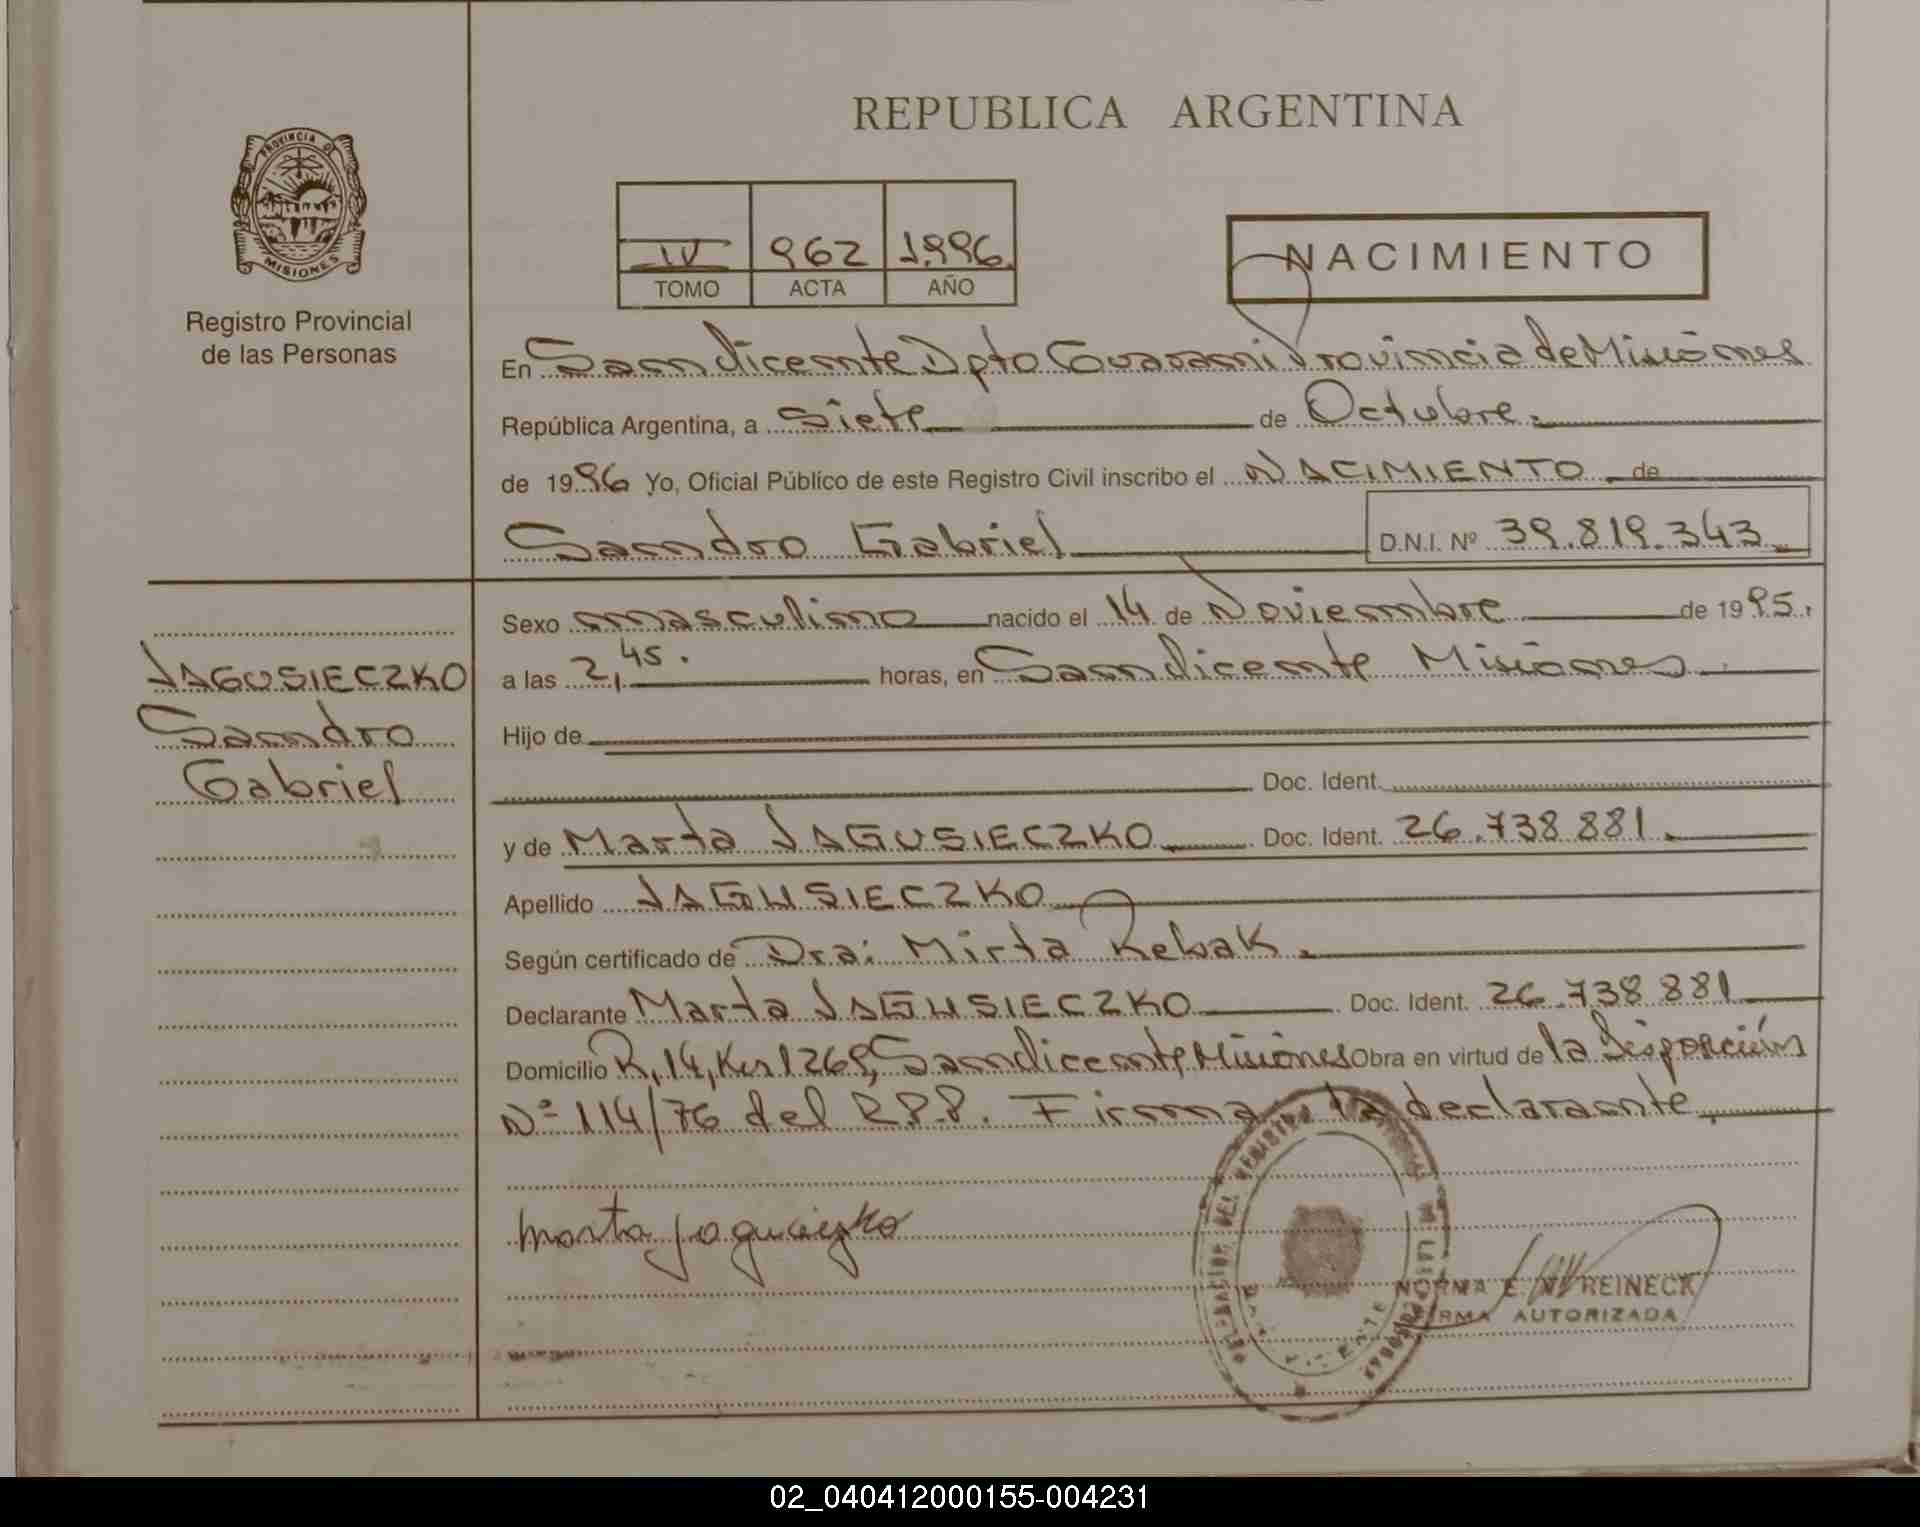 REPUBLICA ARGENTINA
PROVINCIA DE
MISIONES
Registro Provincial
de las Personas
IV 962 1.996.
TOMO ACTA AÑO
NACIMIENTO
En San Vicente Dpto Guarani Provincia de Misiones
República Argentina, a siete de Octubre.
de 1996 Yo, Oficial Público de este Registro Civil inscribo el NACIMIENTO de
Sandro Gabriel D.N.I. Nº 39.819.343
Sexo masculino nacido el 14 de Noviembre de 1995.
a las 2,45. horas, en San Vicente Misiones
JAGUSIECZKO
Sandro
Gabriel
Hijo de
Doc. Ident.
y de Marta JAGUSIECZKO Doc. Ident. 26.738.881.
Apellido JAGUSIECZKO
Según certificado de Dra: Mirta Rebak.
Declarante Marta JAGUSIECZKO Doc. Ident. 26.738.881
Domicilio R, 14, Km 1269, San Vicente Misiones Obra en virtud de la Disposición
Nº 114/76 del R.P.P. Firma la declarante,
Marta Jagucieyko
DELEGACION DEL REGISTRO
NORMA E. REINECK
FIRMA AUTORIZADA
02_040412000155-004231